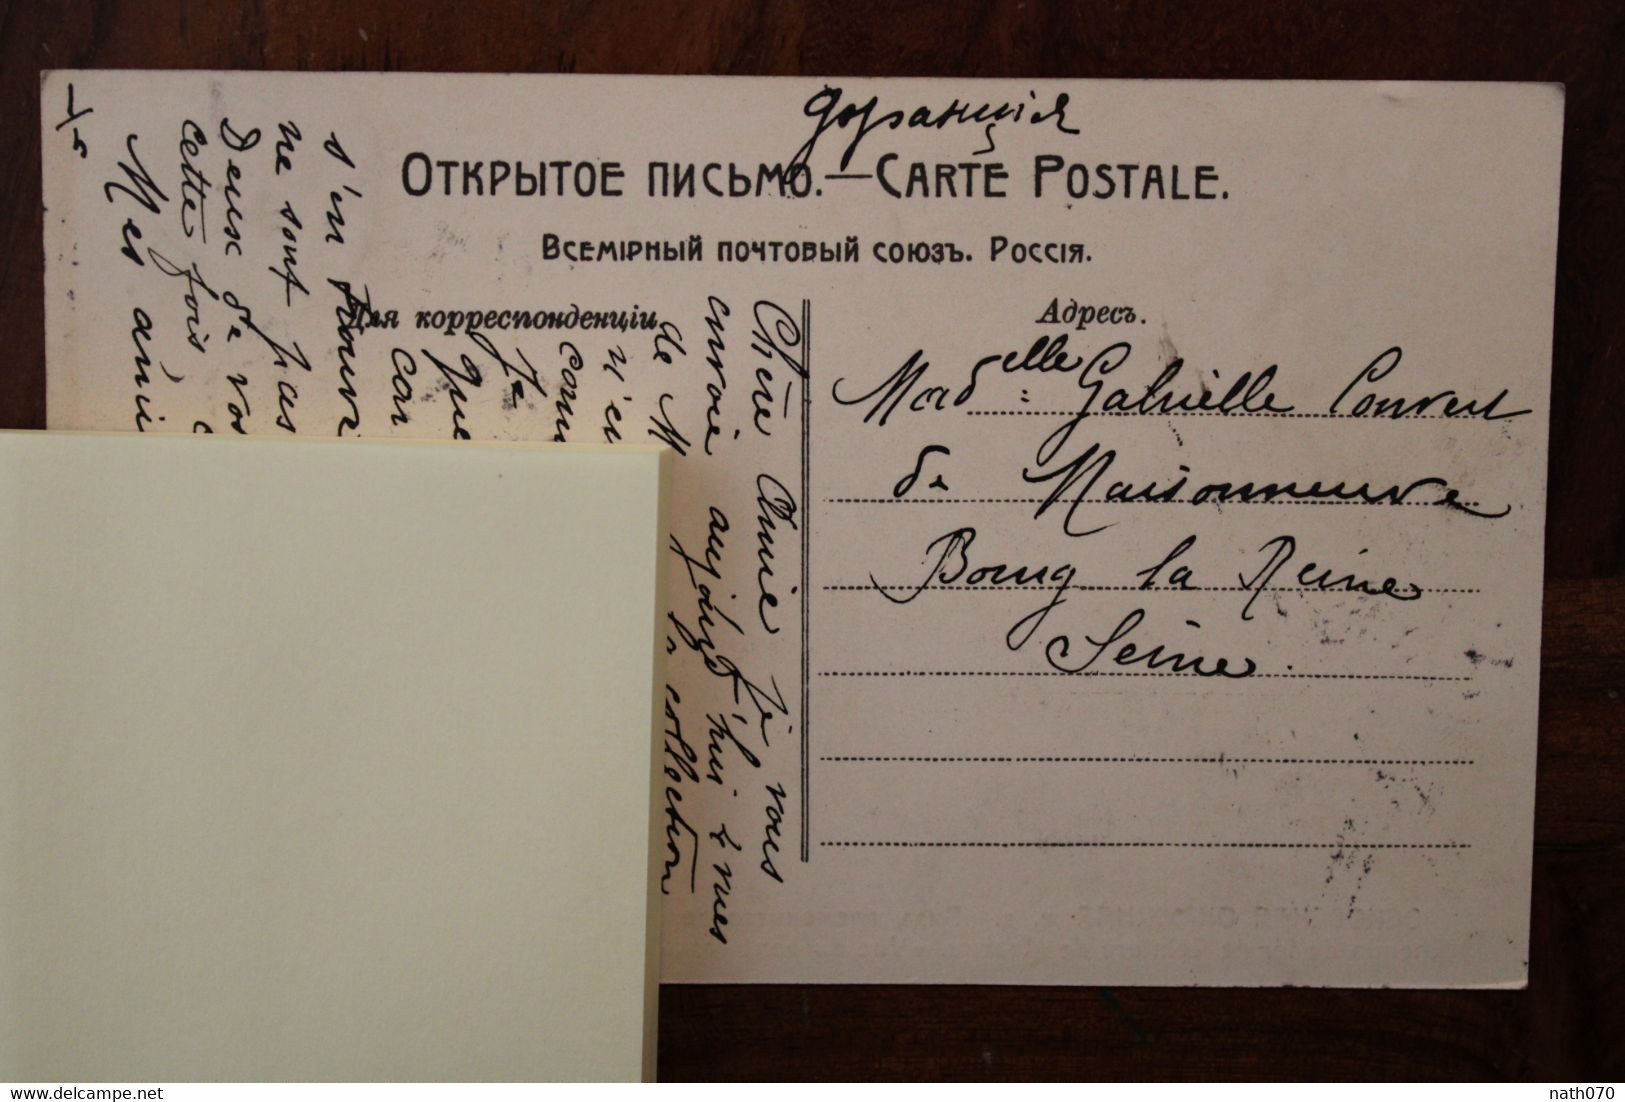 Франція
ОТКРЫТОЕ ПИСЬМО.—CARTE POSTALE.
ВСЕМІРНЫЙ ПОЧТОВЫЙ СОЮЗЪ. РОССІЯ.
Для корреспонденціи
Адресъ.
Madelle Gabrielle Convert
de Maisonneuve
Bourg la Reine
Seine.
Chère Amie je vous
envoie aujourd'hui 2 mes
de M collection
n'e
com
Je
que
car
s'en trouve
ne sont pas
Deux de vos
cette fois
Mes ami
delcampe.net
nath070